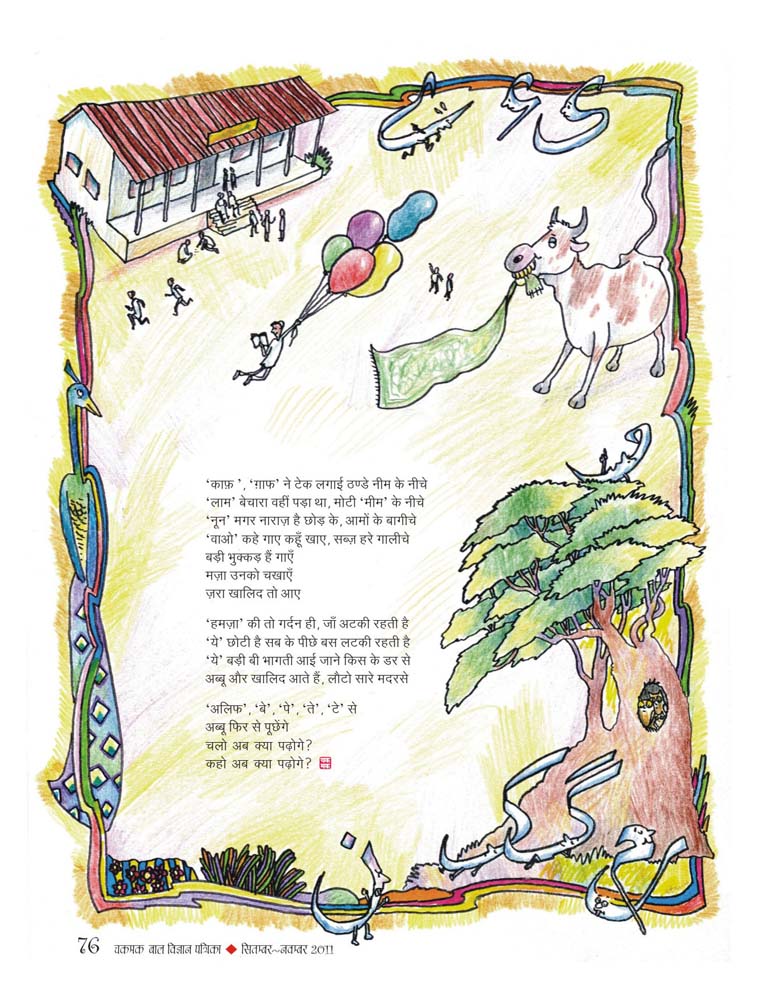 ‘काफ़ ’, ‘ग़ाफ’ ने टेक लगाई ठण्डे नीम के नीचे
‘लाम’ बेचारा वहीं पड़ा था, मोटी ‘मीम’ के नीचे
‘नून’ मगर नाराज़ है छोड़ के, आमों के बागीचे
‘वाओ’ कहे गाए कहूँ खाए, सब्ज़ हरे गालीचे
बड़ी भुक्कड़ हैं गाएँ
मज़ा उनको चखाएँ
ज़रा खालिद तो आए
‘हमज़ा’ की तो गर्दन ही, जाँ अटकी रहती है
‘ये’ छोटी है सब के पीछे बस लटकी रहती है
‘ये’ बड़ी बी भागती आई जाने किस के डर से
अब्बू और खालिद आते हैं, लौटो सारे मदरसे
‘अलिफ’, ‘बे’, ‘पे’, ‘ते’, ‘टे’ से
अब्बू फिर से पूछेंगे
चलो अब क्या पढ़ोगे?
कहो अब क्या पढ़ोगे?
76 चकमक बाल विज्ञान पत्रिका ◆ सितम्बर~नवम्बर 2011